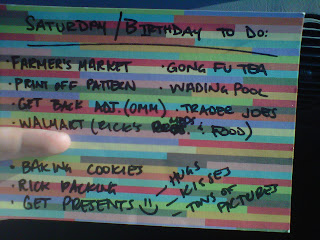 SATURDAY/BIRTHDAY TO DO:
• FARMER'S MARKET • GONG FU TEA
• PRINT OFF PATTERN • WADING POOL
• GET BACK ADJ. (OMM) • TRADER JOES
• WALMART (RICK'S MEDS & FOOD)
• BAKING COOKIES – HUGS
• RICK PACKING – KISSES
• GET PRESENTS – TONS OF PICTURES